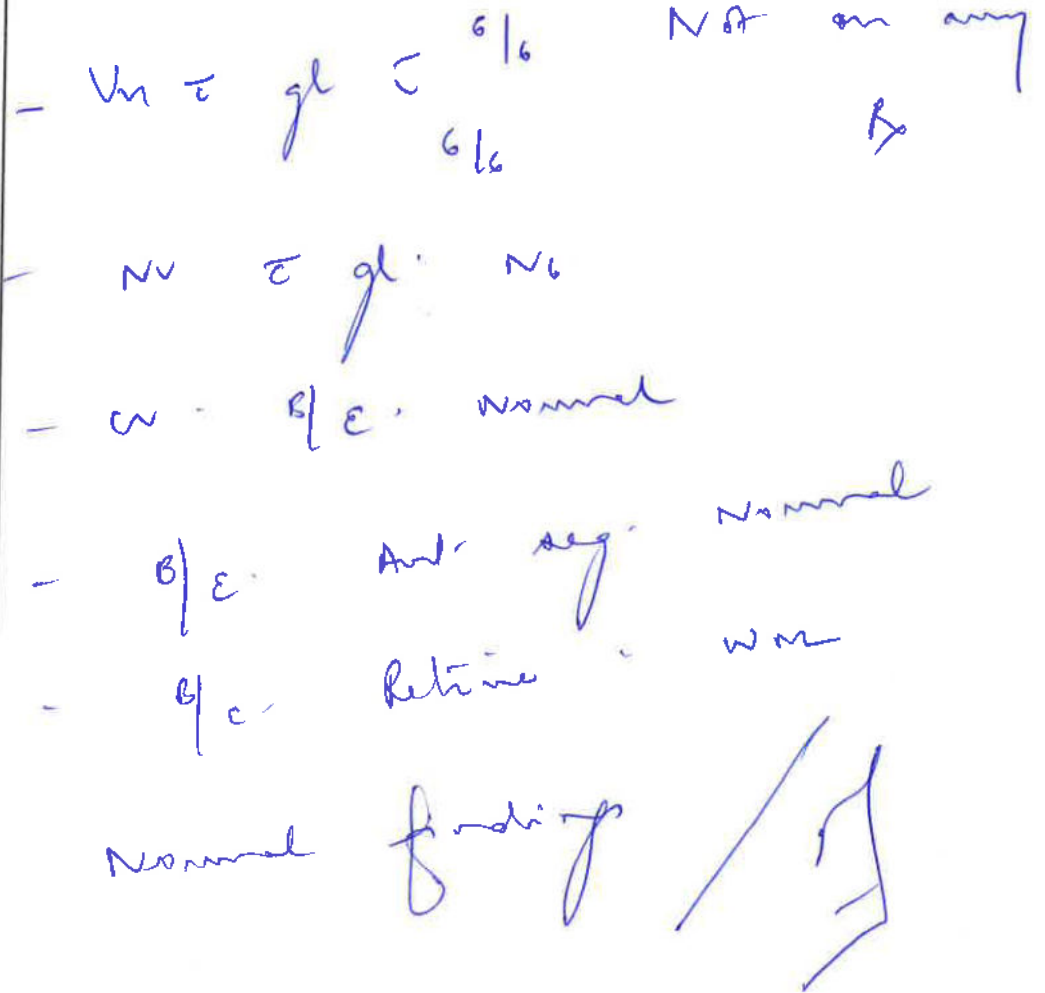 - Vn c̄ gl c̄ 6/6 Not on any
6/6 Rx
- NV c̄ gl. N6
- CV. B/E. Normal
- B/E. Ant. seg. Normal
- B/E. Retina. WNL
Normal findings